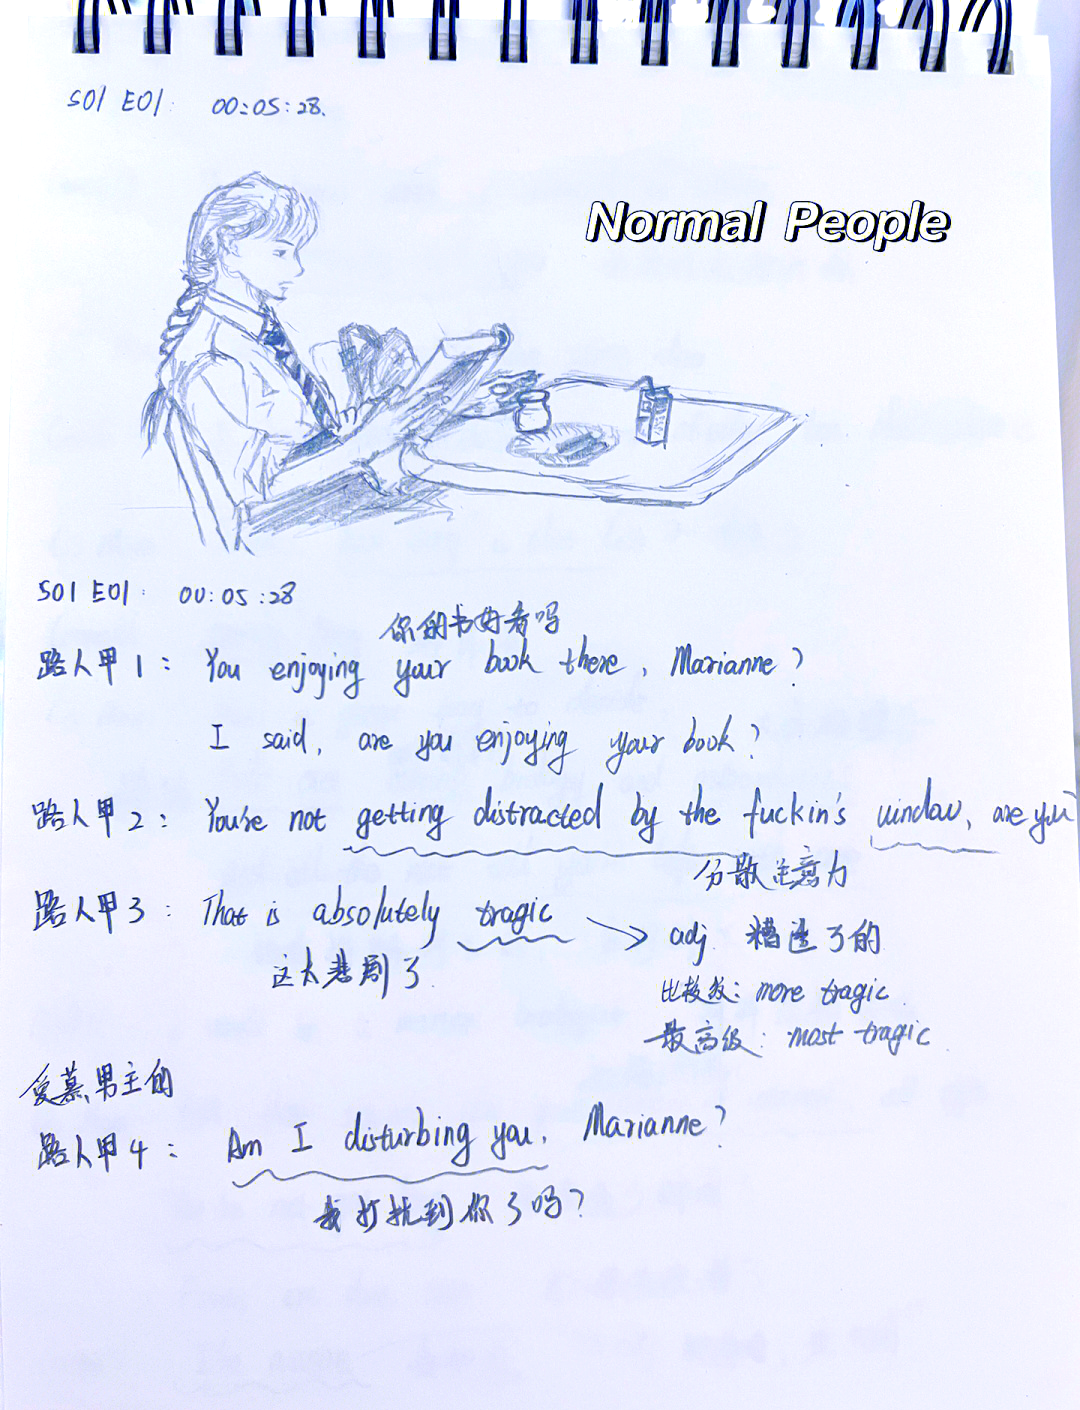 S01 E01: 00:05:28.
Normal People
S01 E01: 00:05:28
你的书好看吗
路人甲1: You enjoying your book there, Marianne?
I said, are you enjoying your book?
路人甲2: You're not getting distracted by the fuckin's window, are you
分散注意力
路人甲3: That is absolutely tragic
adj. 糟透了的
这太悲剧了.
比较级: more tragic.
最高级: most tragic
爱慕男主的
路人甲4: Am I disturbing you, Marianne?
我打扰到你了吗?